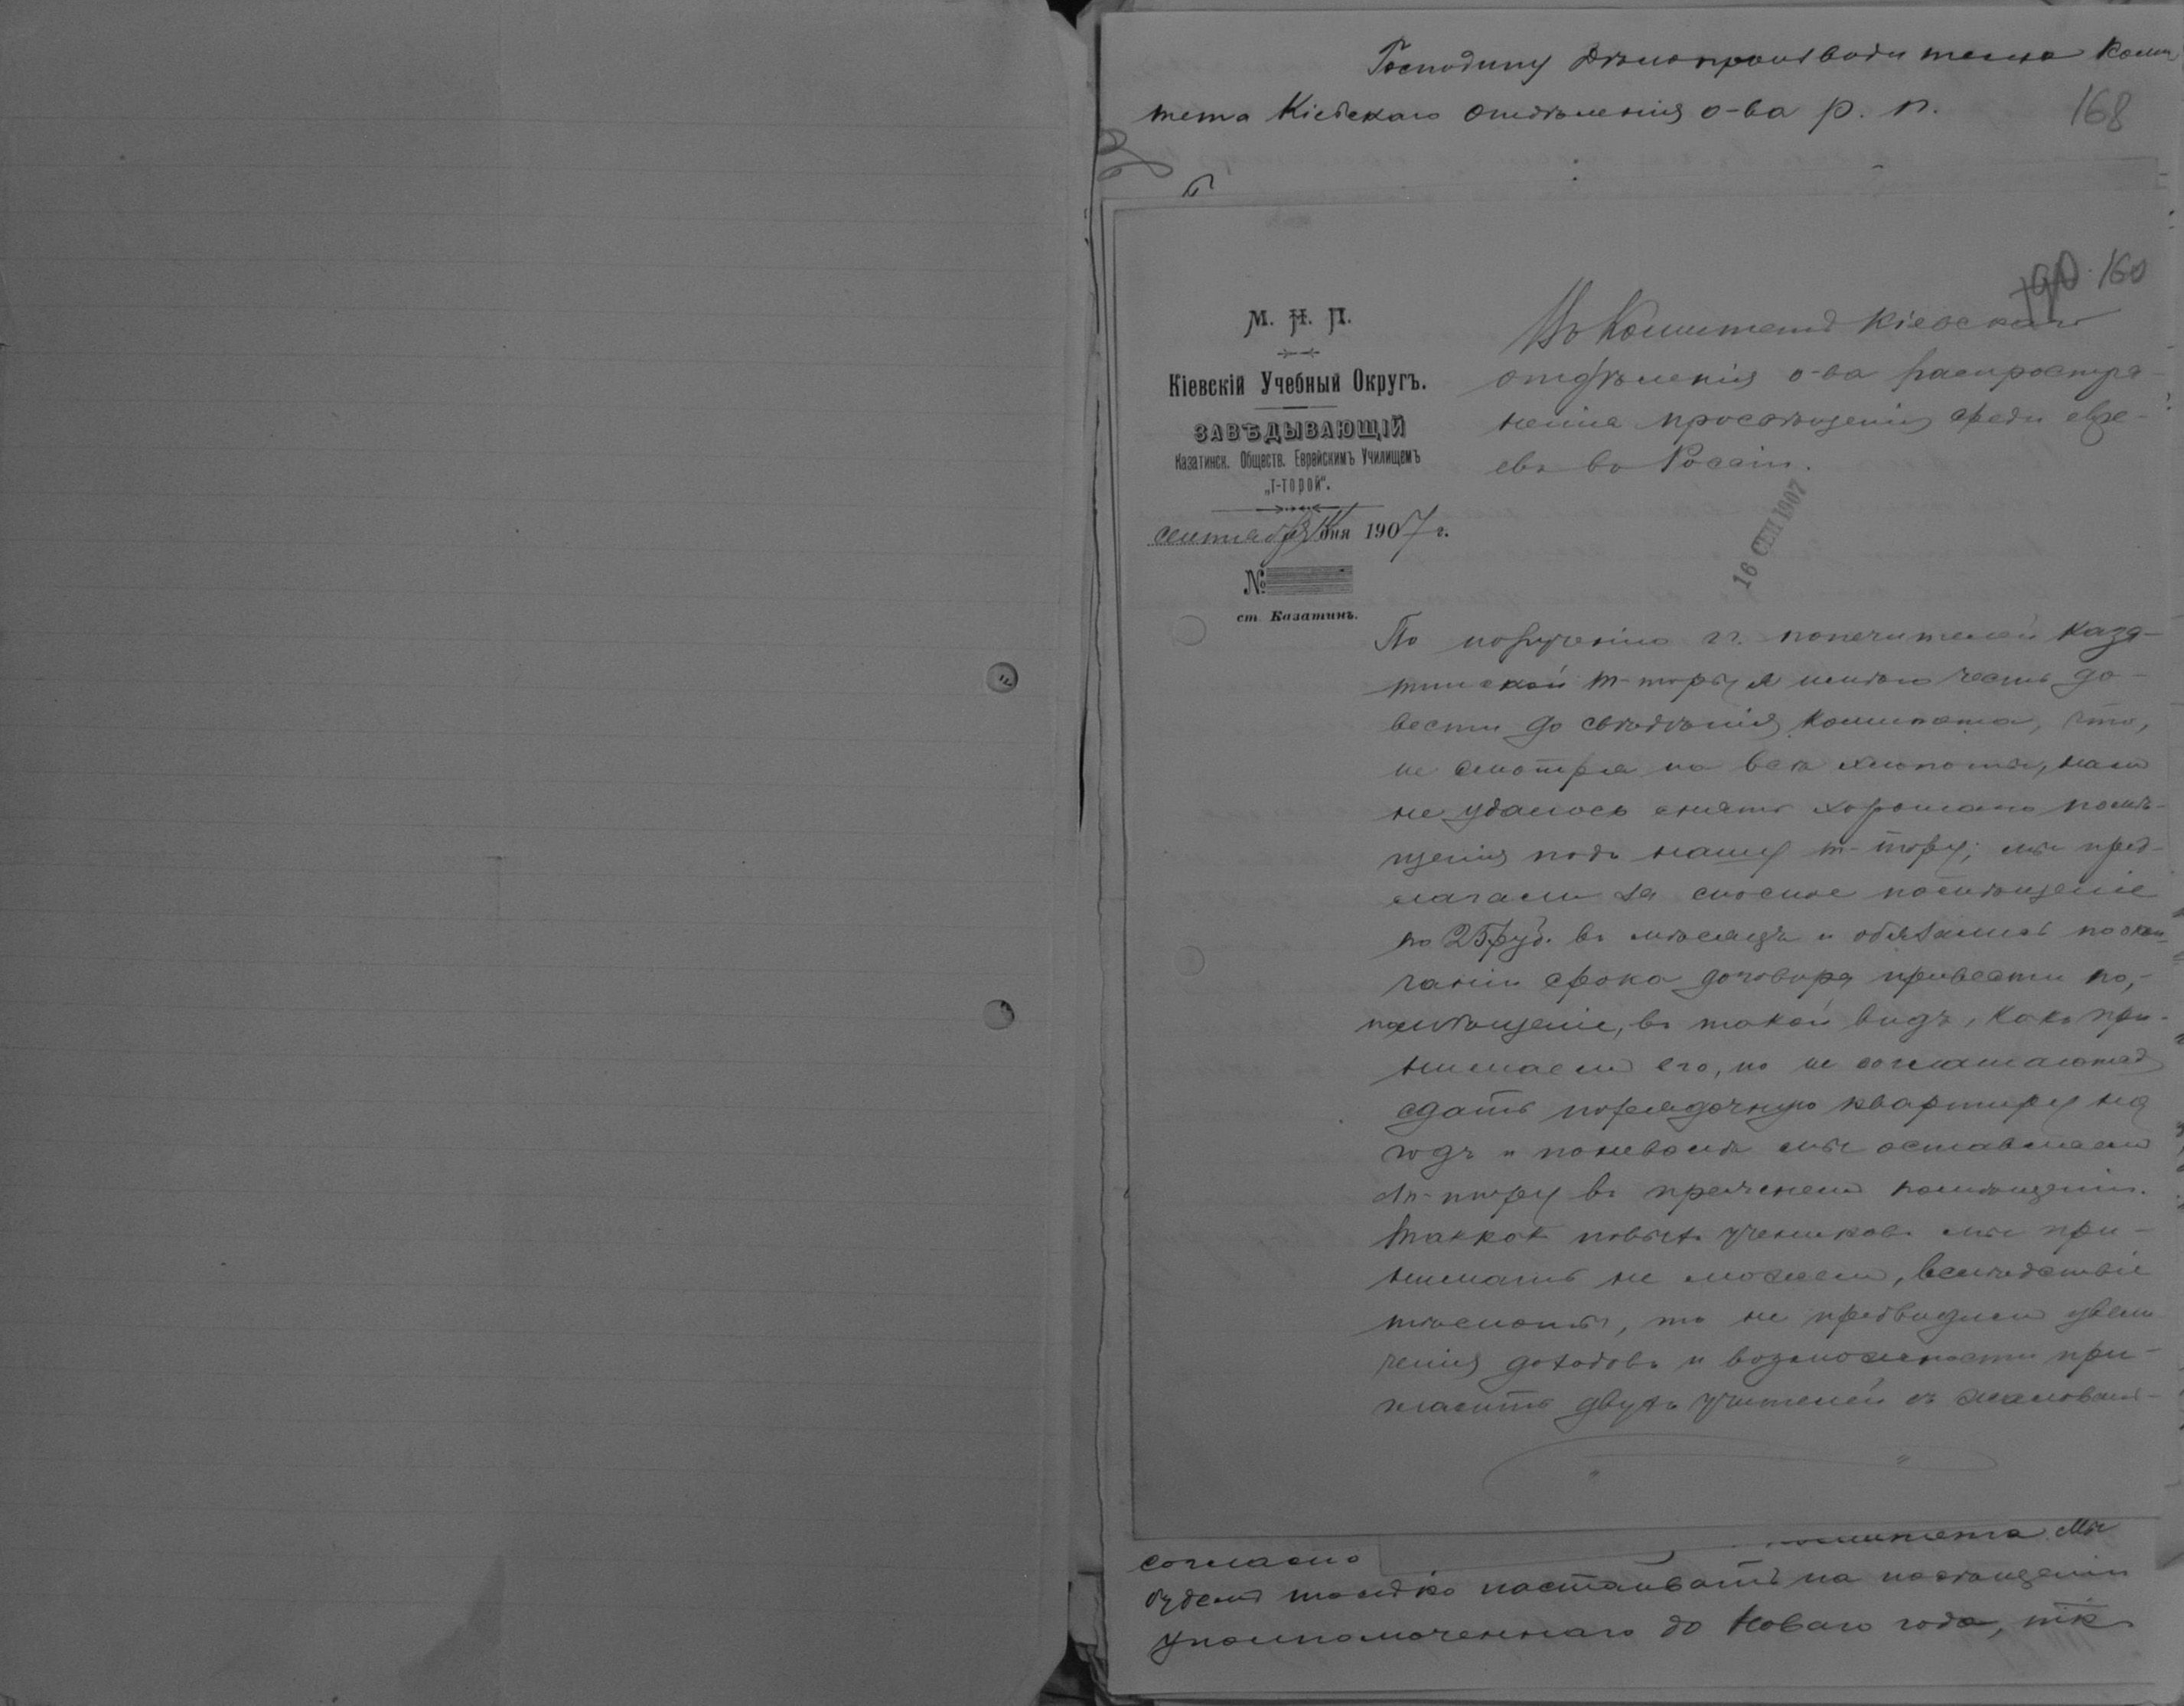 Господину Дѣлопроизводителю Коми
тета Кіевскаго Отдѣленія о-ва р. п.
168
160
М. Н. П.
Кіевскій Учебный Округъ.
ЗАВѢДЫВАЮЩІЙ
Казатинск. Обществ. Еврейскимъ Училищемъ
„Т-торой“.
сентября дня 1907 г.
№
ст. Казатинъ.
Въ Комитетъ Кіевскаго
отдѣленія о-ва распростра-
ненія просвѣщенія среди евре-
евъ въ Россіи.
16 СЕН 1907
По порученію гг. попечителей Каза-
тинской т-торы, я имѣю честь до-
вести до свѣдѣнія Комитета, что,
не смотря на всѣ хлопоты, намъ
не удалось снять хорошаго помѣ-
щенія подъ нашу т-тору; мы пред-
лагали за сносное помѣщеніе
по 25 руб. въ мѣсяцъ и обязались по окон
чаніи срока договора привести по,-
помѣщеніе, въ такой видъ, какъ при-
нимаемъ его, но не соглашаются
сдать порядочную квартиру на
годъ и поневолѣ мы оставляемъ
т-тору въ прежнемъ помѣщеніи.
Такъ какъ новыхъ учениковъ мы при-
нимать не можемъ, вслѣдствіе
тѣсноты, то не предвидимъ увели
ченія доходовъ и возможности при-
гласить двухъ учителей съ жаловань-
согласно Комитета. Мы
будемъ только настаивать на посѣщеніи
уполномоченнаго до Новаго года, т.к.